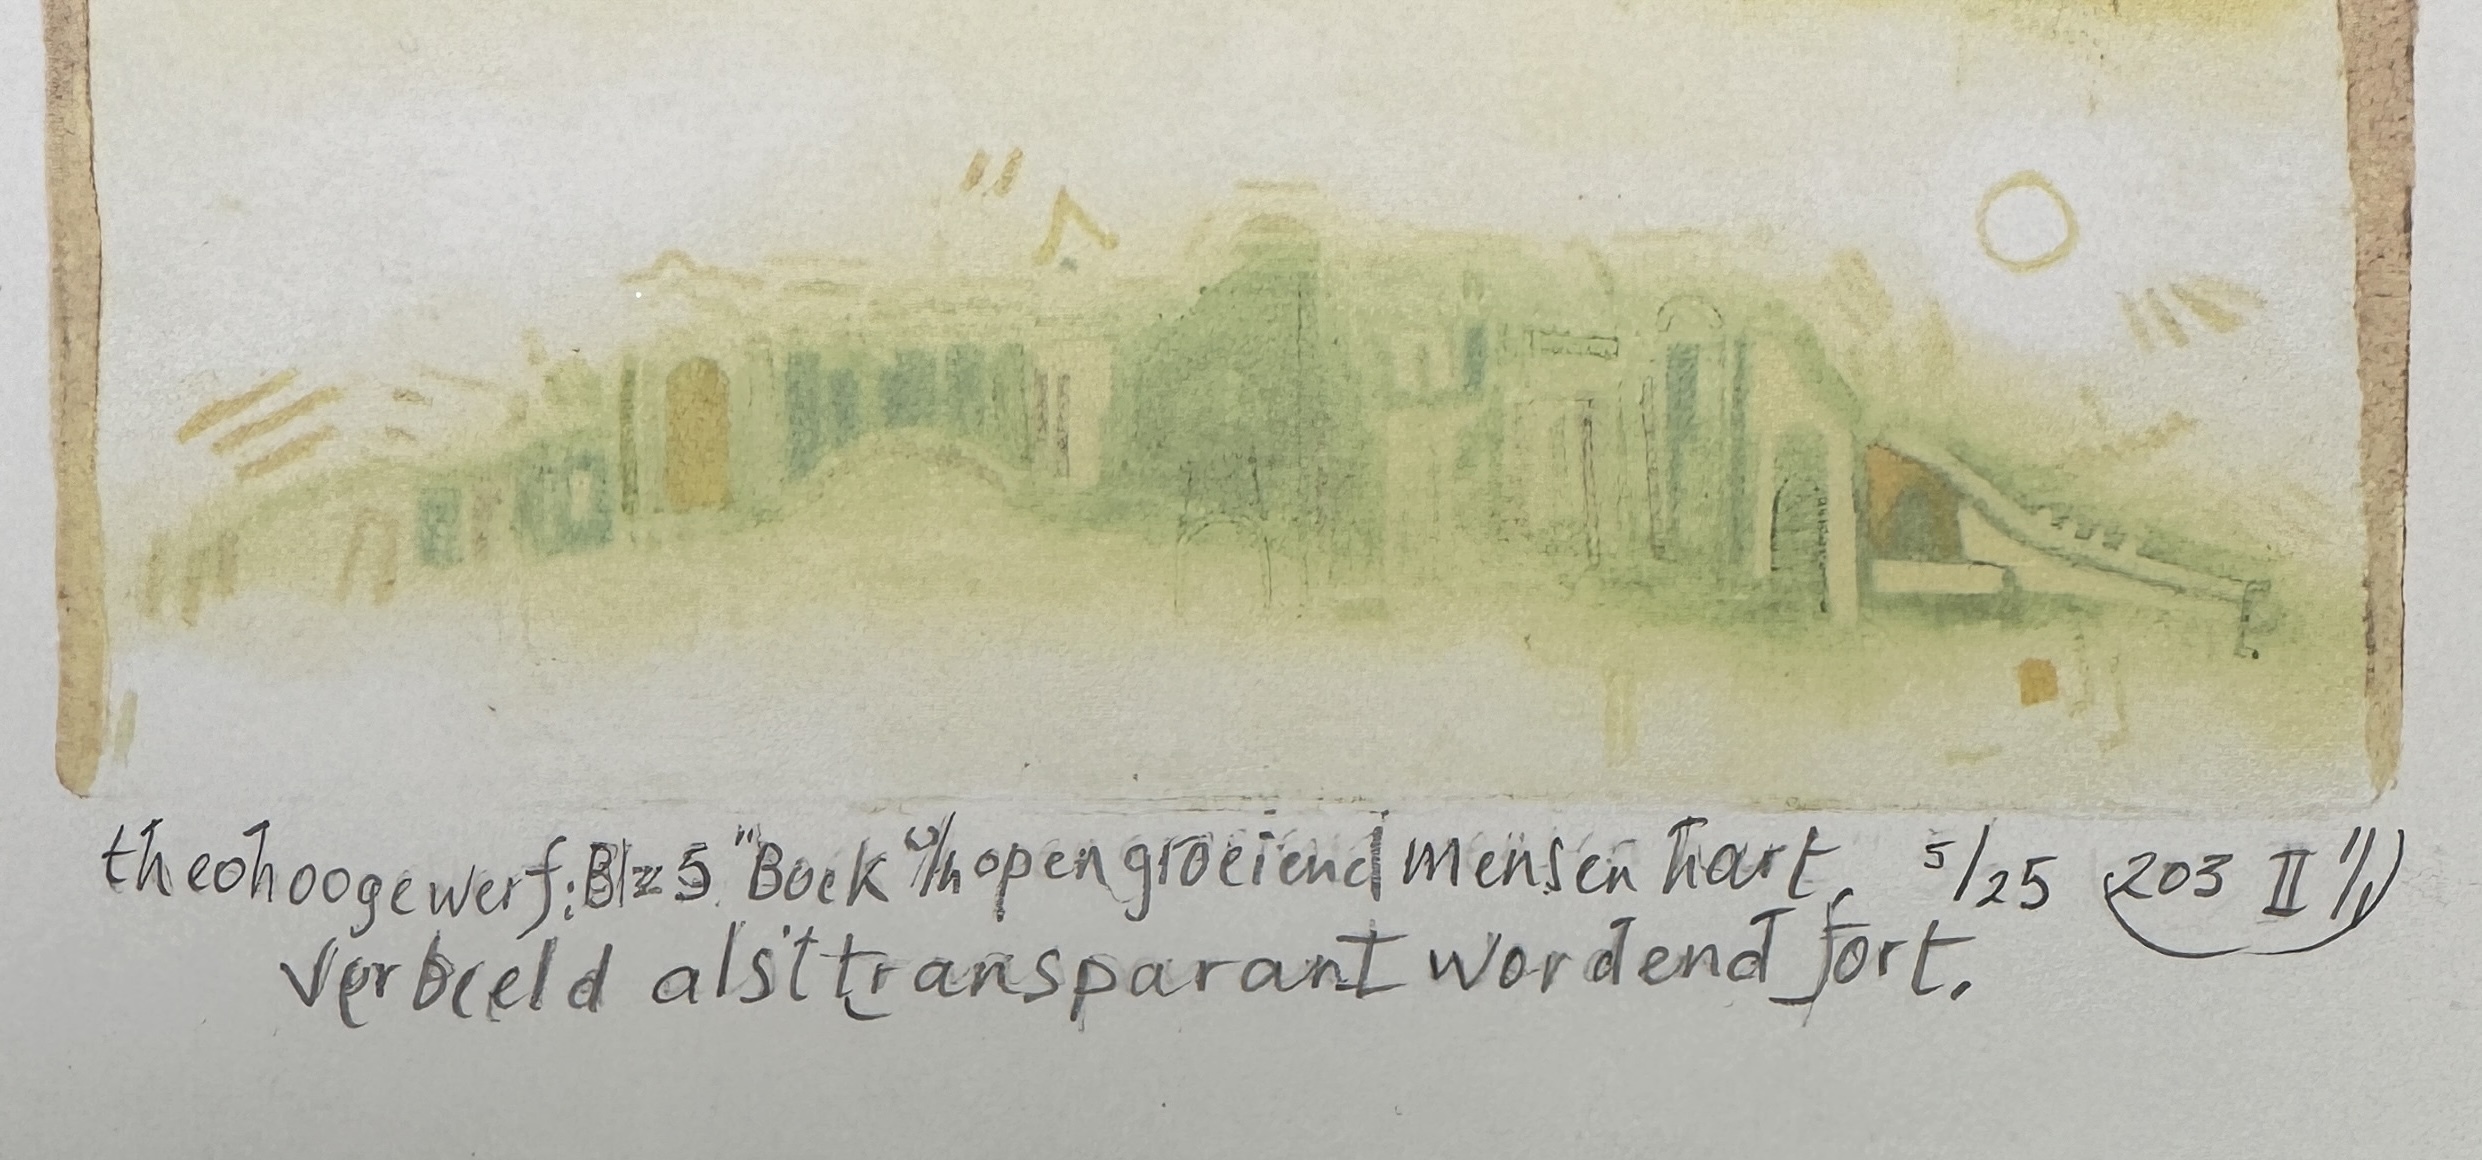 theohoogewerf: Blz 5. "Boek o/h opengroeiend mensen hart. 5/25 (203 II")
Verbeeld als 't transparant wordend fort.